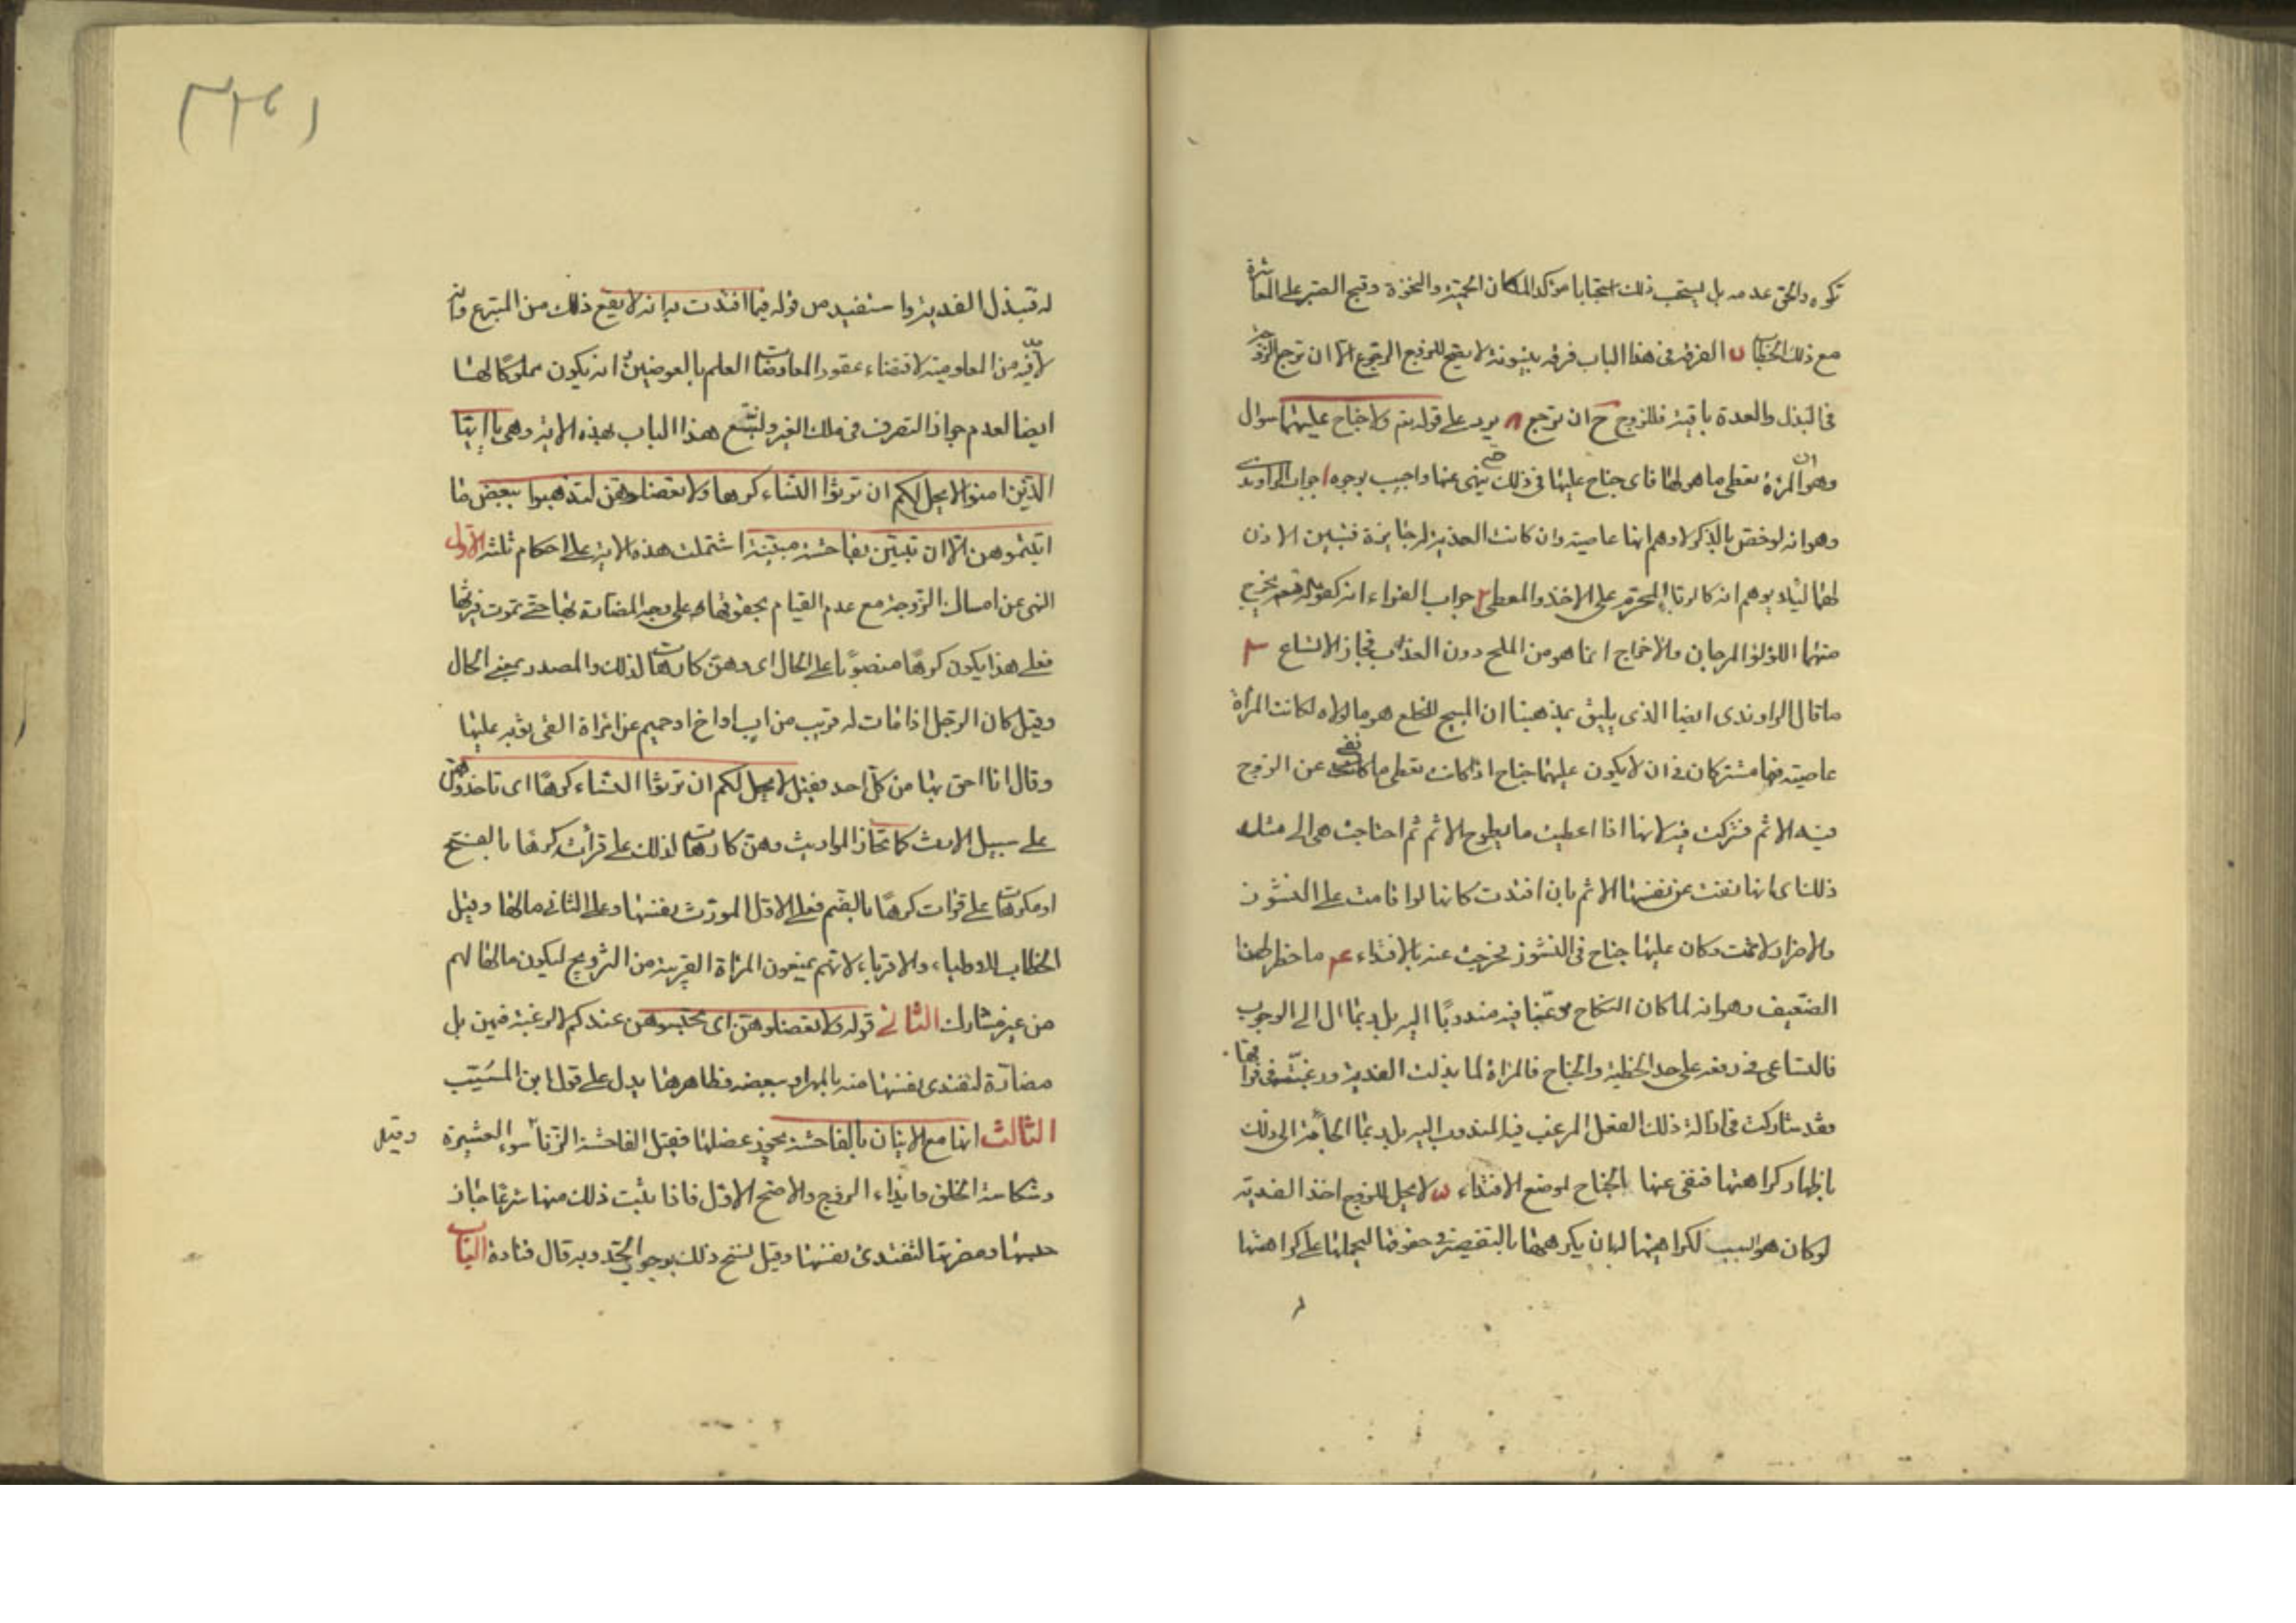 تكره والحق عدمه بل يستحب ذلك استحبابا مؤكدا لمكان الحمية والنخوة وقبح الصبر على المعاشرة
مع ذلك الخطاب ں الفرقة فى هذا الباب فرقة بينونة لا يصح للزوج الرجوع الا ان ترجع الزوجة
فى البذل والعدة باقية فللزوج ح ان ترجع ۸ يرد على قوله تع ولا جناح عليهما سوال
وهو ان المرأة تعطى ما هو لها فاى جناح عليها فى ذلك ينهى عنها واجيب بوجوه ا جواب الراوندى
وهو انه لو خص بالذكر لاوهم انها عاصية وان كانت الفدية له جايزة فتبين الاذن
لهما ليلا يوهم انه كالربا المحرم على الاخذ والمعطى ٢ جواب الفراء انه كقوله تع يخرج
منهما اللؤلؤ والمرجان والاخراج انما هو من الملح دون العذب فجاز الاتساع ٣
ما قال الراوندى ايضا الذى يليق بمذهبنا ان المبيح للخلع هو ما لولاه لكانت المرأة
عاصية فهما مشتركان فى ان لا يكون عليهما جناح اذا كانت تعطى ما نفى عن الزوج
فيه الاثم فشركت فيه لانها اذا اعطيت ما يطرح الاثم ثم احتاجت هى الى مثله
ذلك اى انها نفت عن نفسها الاثم بان افتدت كانها لو اقامت على النشوز
والاضرار لاثمت وكان عليها جناح فى النشوز فخرجت عنه بالافتداء عم ما خطر لهذا
الضعيف وهو انه لما كان النكاح مرغبا فيه مندوبا اليه بل ربما ال الى الوجوب
فالساعى فى رفعه على حد الخطية والجناح فالمرأة لما بذلت الفدية ورغبته فى فراقها
فقد شاركت فى ازالة ذلك الفعل المرغب فيه المندوب اليه بل ربما الجأته الى ذلك
باظهار كراهتها فنفى عنها الجناح لوضع الافتداء ں لا يحل للزوج اخذ الفدية
لو كان هو السبب لكراهيتها له بان يكرهها بالتقصير فى حقوقها ليحملها على كراهتها
له فتبذل الفدية واستفيد من قوله فيما افتدت به انه لا يقع ذلك من المتبرع وانه
لابد فيه من المعلومية لاقتضاء عقود المعاوضات العلم بالعوضين وانه يكون مملوكا لها
ايضا لعدم جواز التصرف فى ملك الغير ولنتبع هذا الباب بهذه الاية وهى يا ايها
الذين امنوا لا يحل لكم ان ترثوا النساء كرها ولا تعضلوهن لتذهبوا ببعض ما
اتيتموهن الا ان ياتين بفاحشة مبينة اشتملت هذه الاية على احكام ثلثة الاول
النهى عن امساك الزوجة مع عدم القيام بحقوقها على وجه المضارة لها حتى تموت فيرثها
فعلى هذا يكون كرها منصوبا على الحال اى وهن كارهات لذلك والمصدر بمعنى الحال
وقيل كان الرجل اذا مات له قريب من اب او اخ او حميم عن امرأة القى ثوبه عليها
وقال انا احق بها من كل احد فقيل لا يحل لكم ان ترثوا النساء كرها اى تاخذوهن
على سبيل الارث كما تحاز المواريث وهن كارهات لذلك على قرأت كرها بالفتح
او مكرهات على قرات كرها بالضم فعلى الاول الموروث نفسها وعلى الثانى مالها وقيل
الخطاب للاولياء والاقرباء لانهم يمنعون المرأة القريبة من التزويج ليكون مالها لهم
من غير مشارك الثانى قوله ولا تعضلوهن اى تحبسوهن عندكم لا لرغبة فيهن بل
مضارة لتفتدى نفسها منه بالمهر او ببعضه وظاهرها يدل على قول ابن المسيب
الثالث انها مع الاتيان بالفاحشة يجوز عضلها فقيل الفاحشة الزنا وقيل سوء العشيرة
وشكاسة الخلق وايذاء الزوج والاصح الاول فاذا ثبت ذلك منها شرعا جاز
حبسها وعضرتها لتفتدى نفسها وقيل نسخ ذلك بوجوب الحد وبه قال قتادة الباب